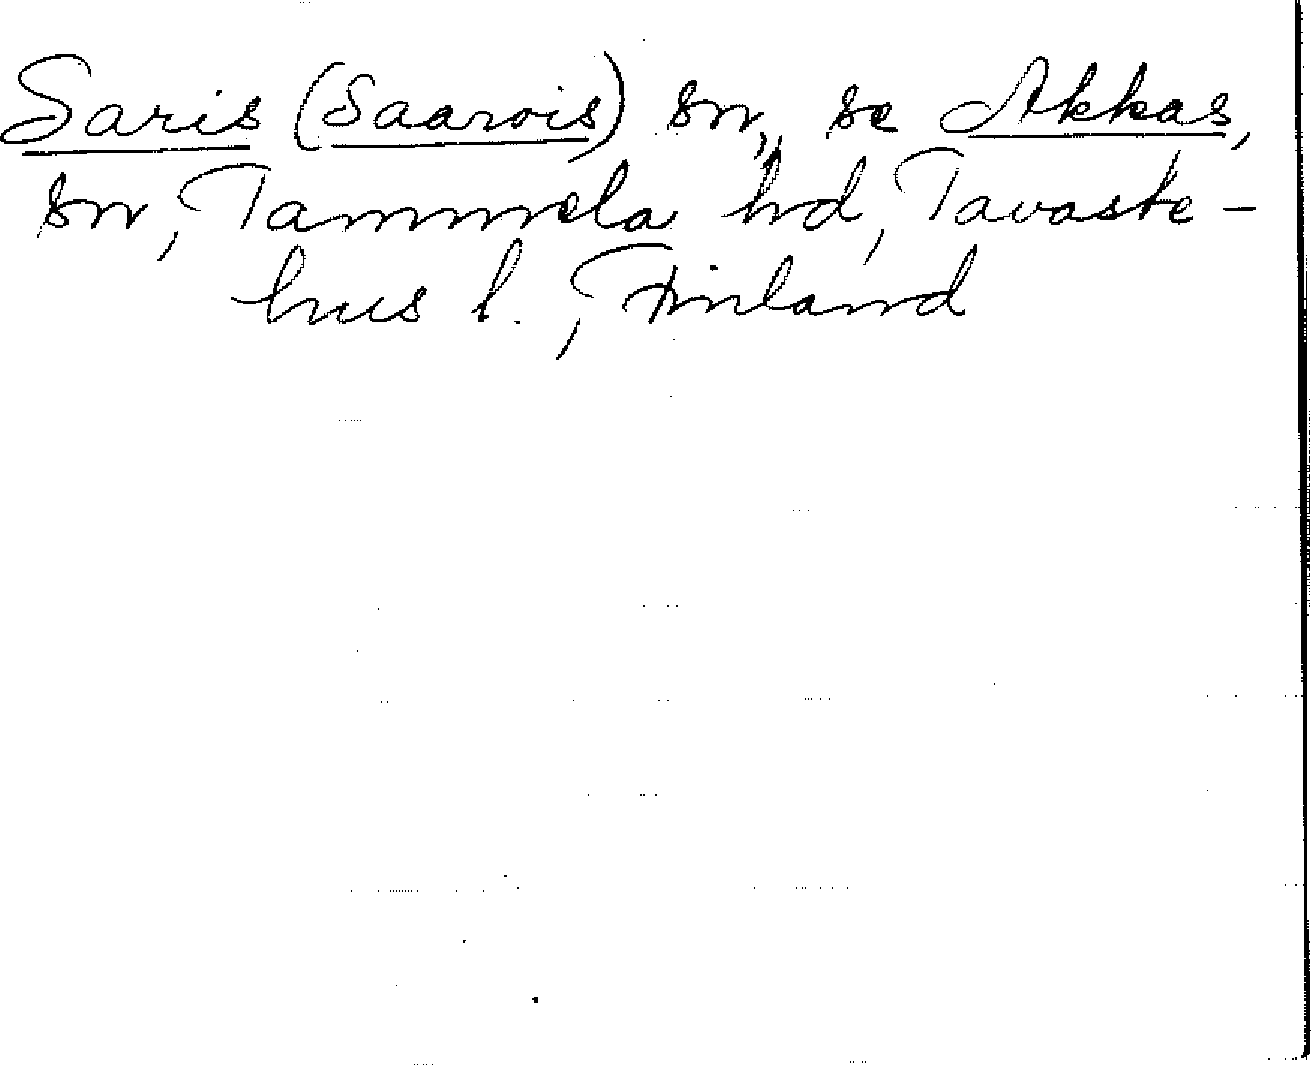 Saris (Saarois) sn, se Akkas,
sn, Tammela hd, Tavaste-
hus l., Finland